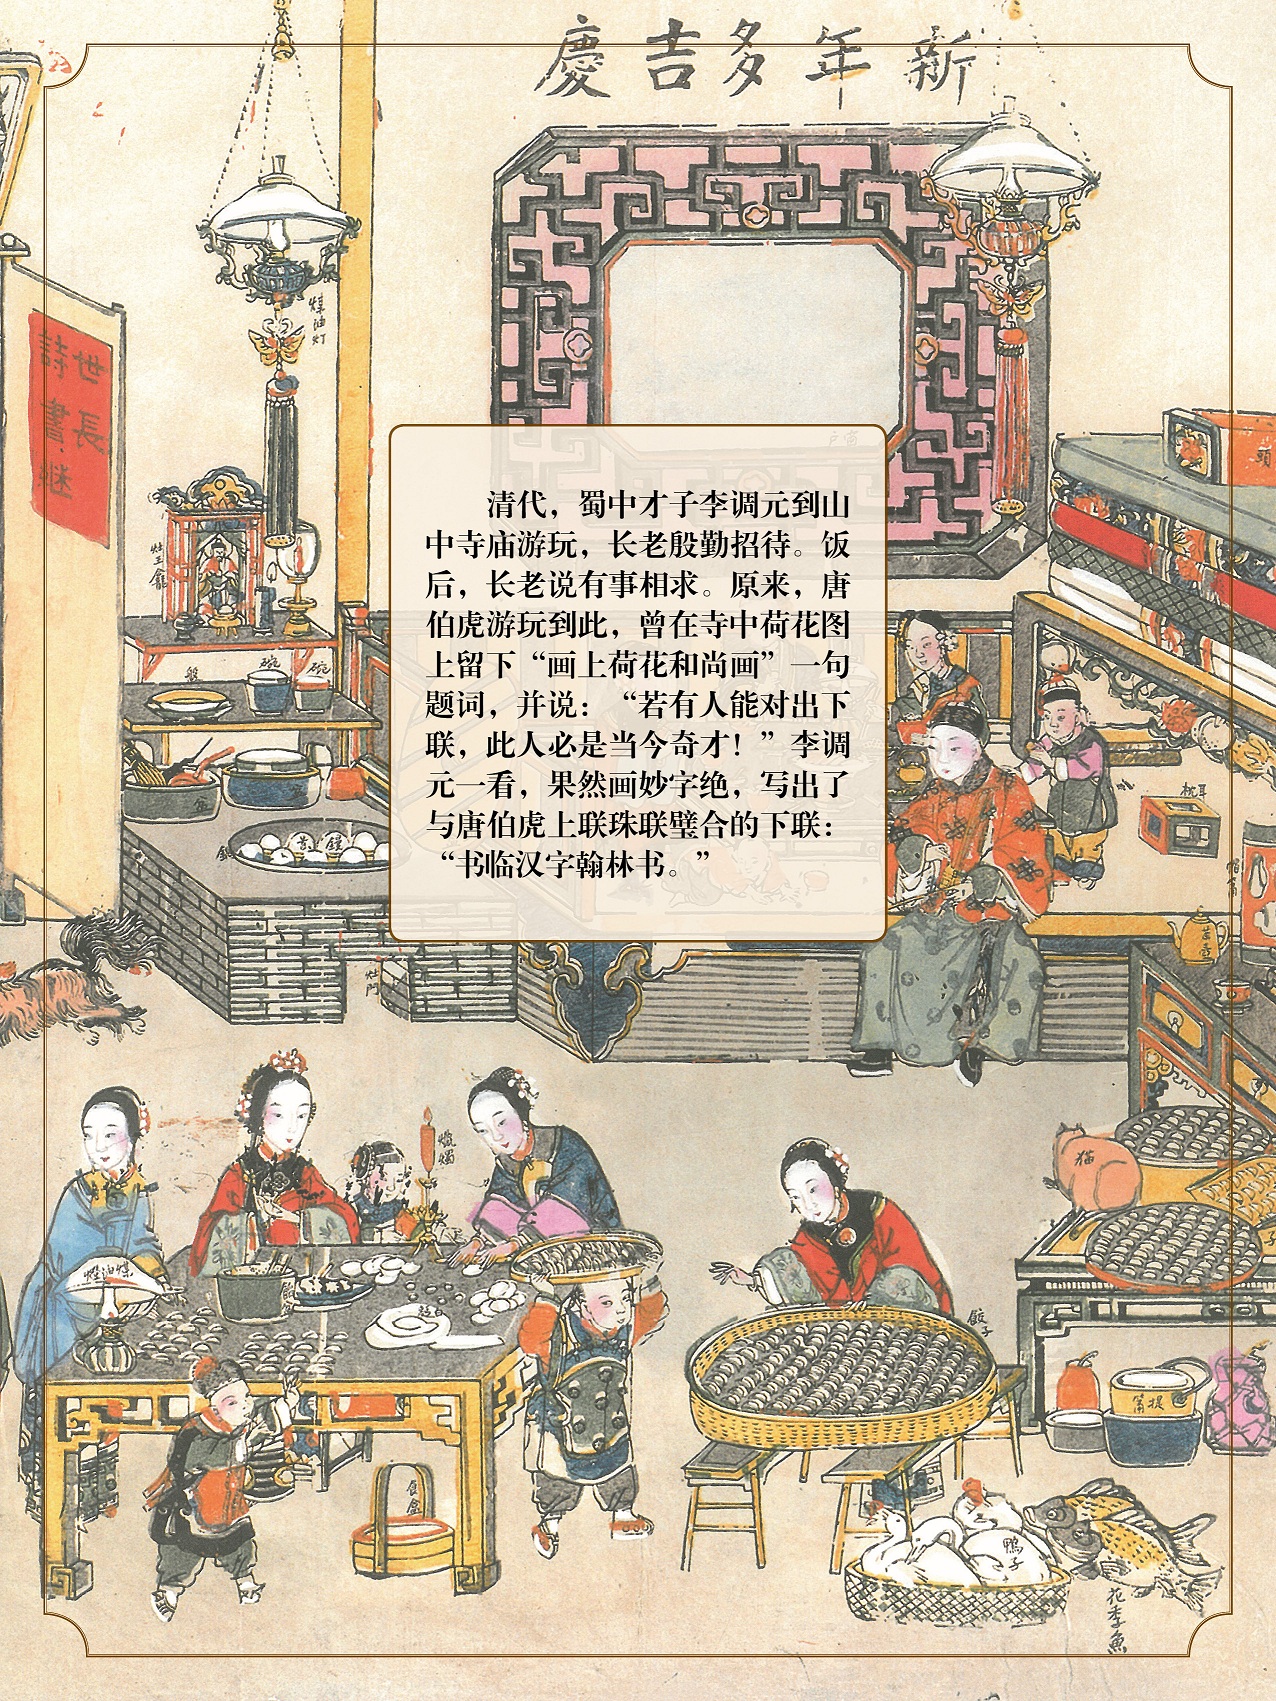 新年多吉慶
煤油灯
世長
詩書継
灶王龕
盤
碗
碗
清代，蜀中才子李调元到山
中寺庙游玩，长老殷勤招待。饭
后，长老说有事相求。原来，唐
伯虎游玩到此，曾在寺中荷花图
上留下“画上荷花和尚画”一句
题词，并说：“若有人能对出下
联，此人必是当今奇才！”李调
元一看，果然画妙字绝，写出了
与唐伯虎上联珠联璧合的下联：
“书临汉字翰林书。”
頭
枕耳
帽筩
茶壺
灶門
蠟燭
猫
煤油燈
餃子
食盒
鴨子
花李魚